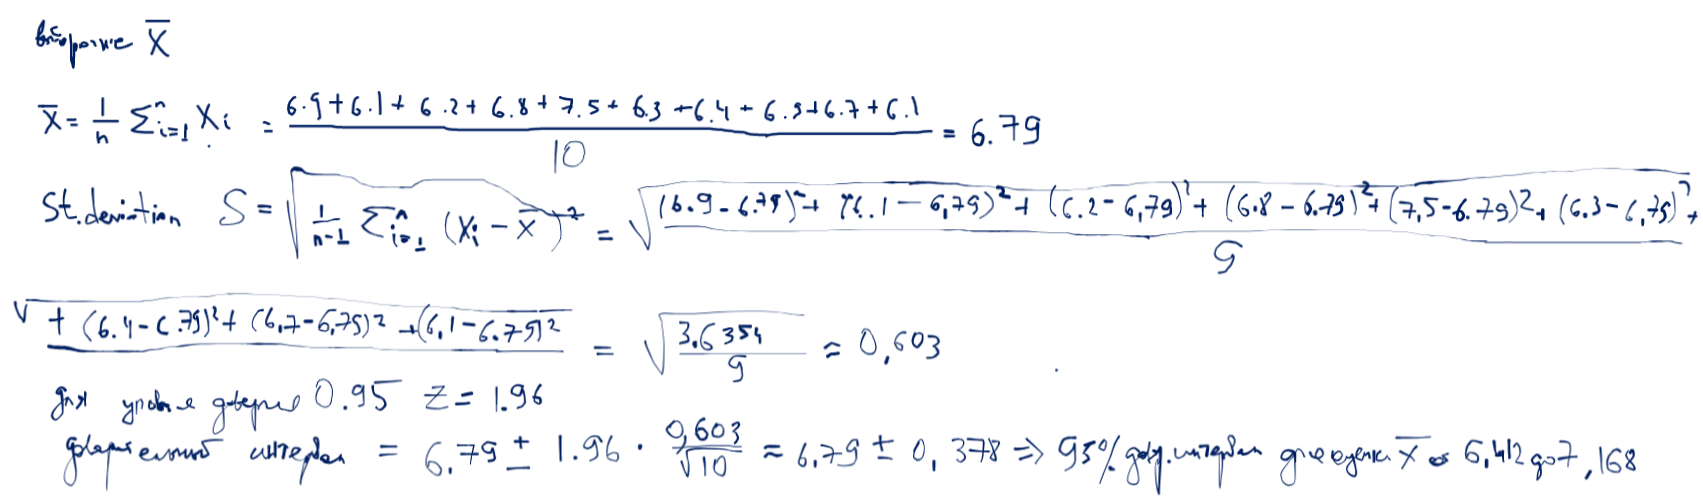 выборочное X̅
X̅ = 1/n Σⁿᵢ₌₁ Xᵢ = (6.9+6.1+6.2+6.8+7.5+6.3+6.4+6.9+6.7+6.1)/10 = 6.79
St. deviation S = √(1/(n-1) Σⁿᵢ₌₁ (Xᵢ - X̅)²) = √((6.9-6.79)²+ (6.1-6,79)²+ (6.2-6,79)²+ (6.8-6.79)²+ (7,5-6.79)²+ (6.3-6,79)²+ / 9
√ + (6.4-6.79)²+ (6,7-6,79)² + (6,1-6.79)² = √(3.6354/9) ≈ 0,603
для уровня доверия 0.95 Z = 1.96
доверительный интервал = 6.79 ± 1.96 · 0,603/√10 ≈ 6,79 ± 0,378 => 95% дов. интервал для оценки X̅ 6,412 до 7,168